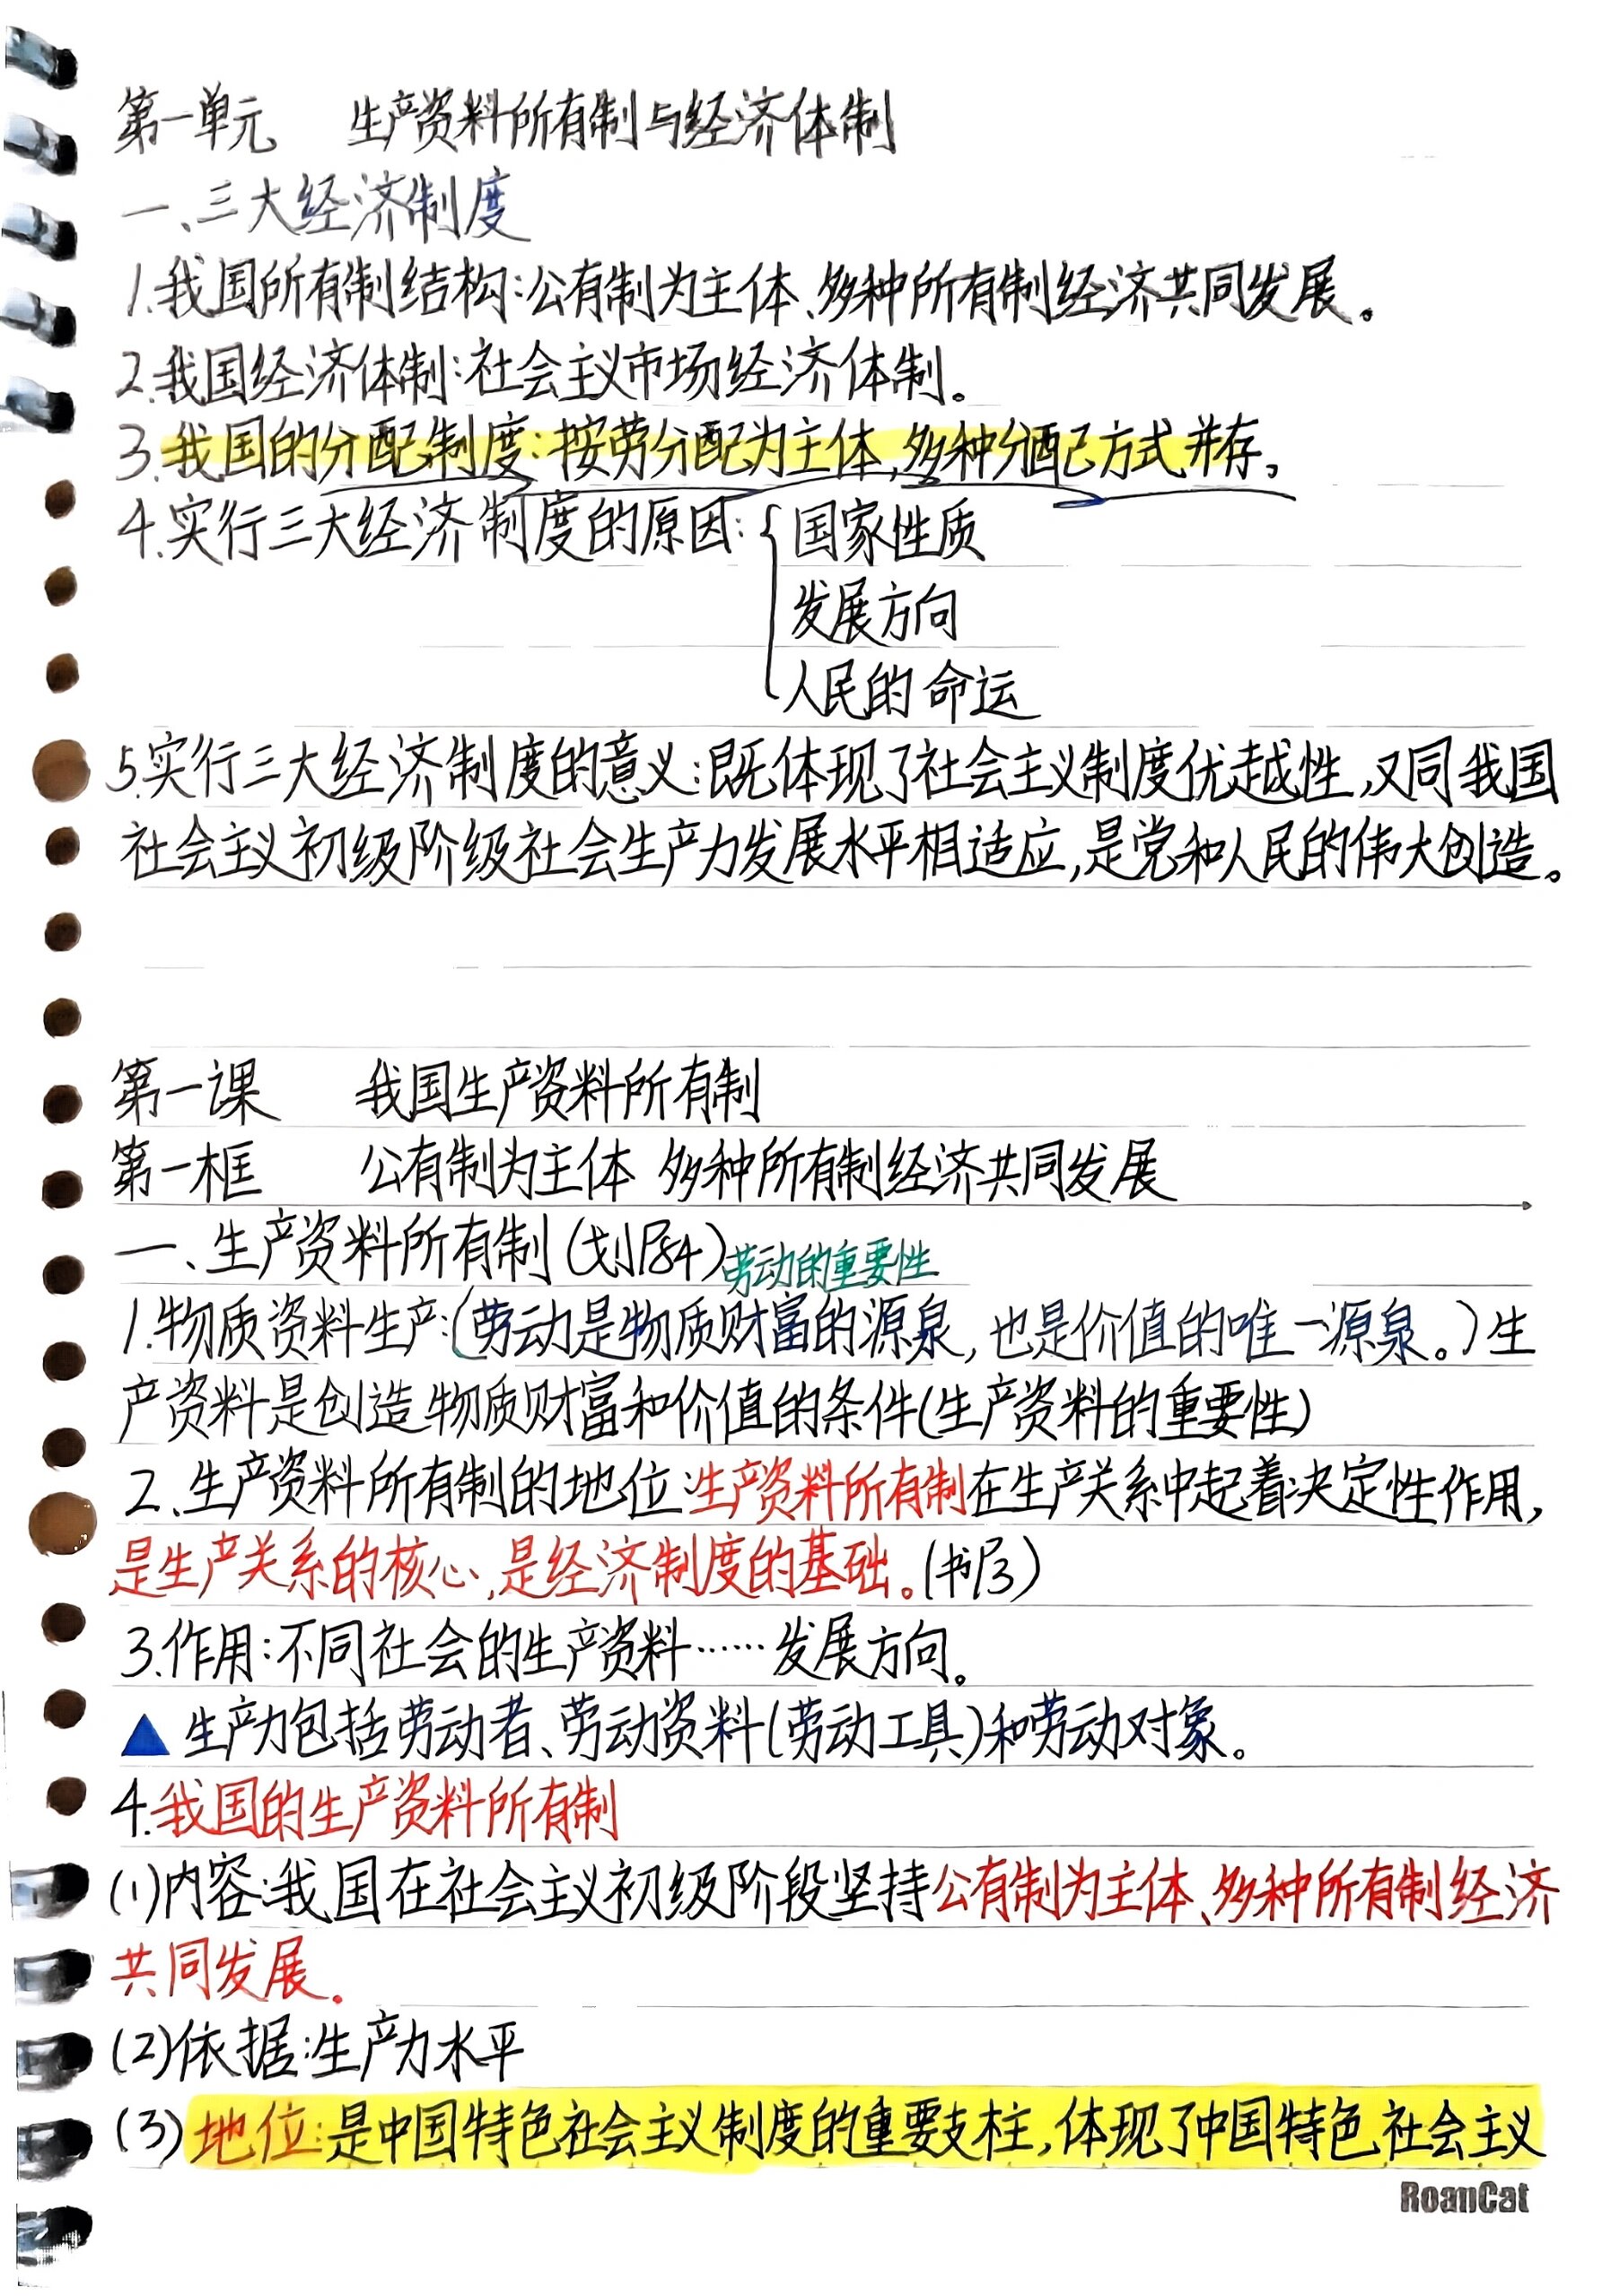 第一单元 生产资料所有制与经济体制
一、三大经济制度
1.我国所有制结构:公有制为主体、多种所有制经济共同发展。
2.我国经济体制:社会主义市场经济体制。
3.我国的分配制度:按劳分配为主体,多种分配方式并存。
4.实行三大经济制度的原因:{国家性质
发展方向
人民的命运
5.实行三大经济制度的意义:既体现了社会主义制度优越性,又同我国
社会主义初级阶级社会生产力发展水平相适应,是党和人民的伟大创造。
第一课 我国生产资料所有制
第一框 公有制为主体 多种所有制经济共同发展
一、生产资料所有制(划P84)劳动的重要性
1.物质资料生产:(劳动是物质财富的源泉,也是价值的唯一源泉。)生
产资料是创造物质财富和价值的条件(生产资料的重要性)
2、生产资料所有制的地位:生产资料所有制在生产关系中起着决定性作用,
是生产关系的核心,是经济制度的基础。(书P3)
3.作用:不同社会的生产资料……发展方向。
▲生产力包括劳动者、劳动资料(劳动工具)和劳动对象。
4.我国的生产资料所有制
(1)内容:我国在社会主义初级阶段坚持公有制为主体、多种所有制经济
共同发展。
(2)依据:生产力水平
(3)地位:是中国特色社会主义制度的重要支柱,体现了中国特色社会主义
RoanCat